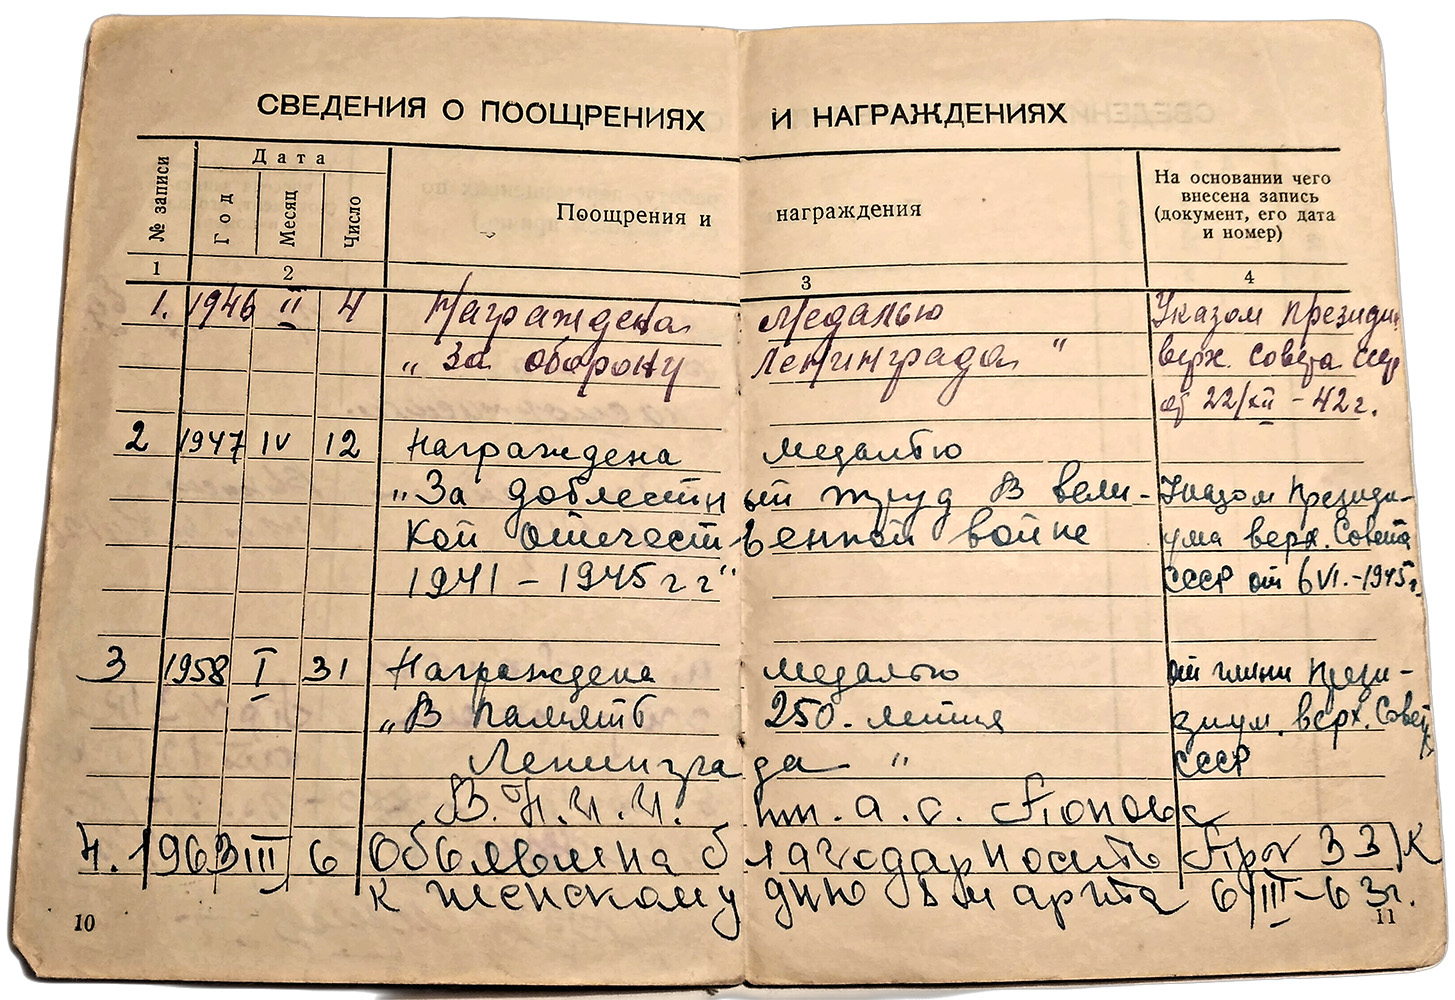 СВЕДЕНИЯ О ПООЩРЕНИЯХ И НАГРАЖДЕНИЯХ
№ записи
Дата
Год
Месяц
Число
Поощрения и награждения
На основании чего
внесена запись
(документ, его дата
и номер)
1 2 3 4
1. 1946 II 4 Награждена медалью Указом Президи
„За оборону Ленинграда" верх. совета ссср
от 22/XII - 42 г.
2 1947 IV 12 Награждена медалью
„За доблестный труд в вели- Указом Президи-
кой отечественной войне ума верх. Совета
1941 - 1945 г г" СССР от 6 VI. - 1945 г.
3 1958 I 31 Награждена медалью от имени Прези-
„В память 250. летия зиум. верх. Совет
Ленинграда" СССР
В. Н. И. И. им. А. С. Попова
4. 1963 III 6 Объявлена благодарность Пр № 33/К
к женскому дню 8 марта 6/III-63г.
10
11